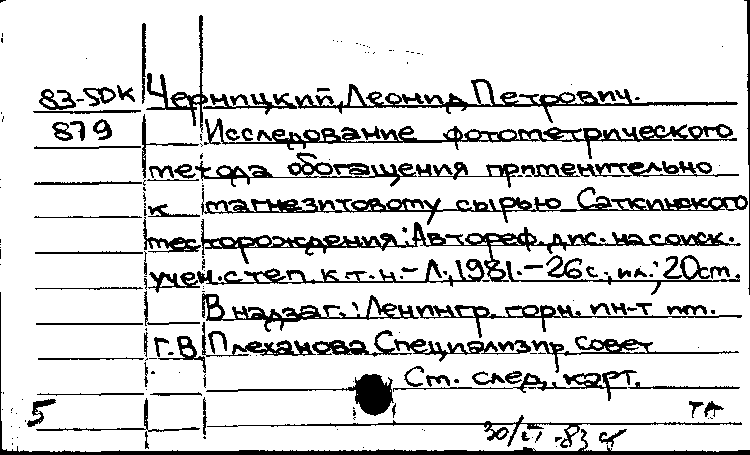 83-5ДК Черницкий, Леонид Петрович.
879 Исследование фотометрического
метода обогащения применительно
к магнезитовому сырью Саткинского
месторождения: Автореф. дис. на соиск.
учен. степ. к.т.н. - Л., 1981. - 26 с.; ил.; 20 см.
В надзаг.: Ленингр. горн. ин-т им.
Г.В. Плеханова. Специализир. совет
См. след. карт.
5 ТА
30/ -83